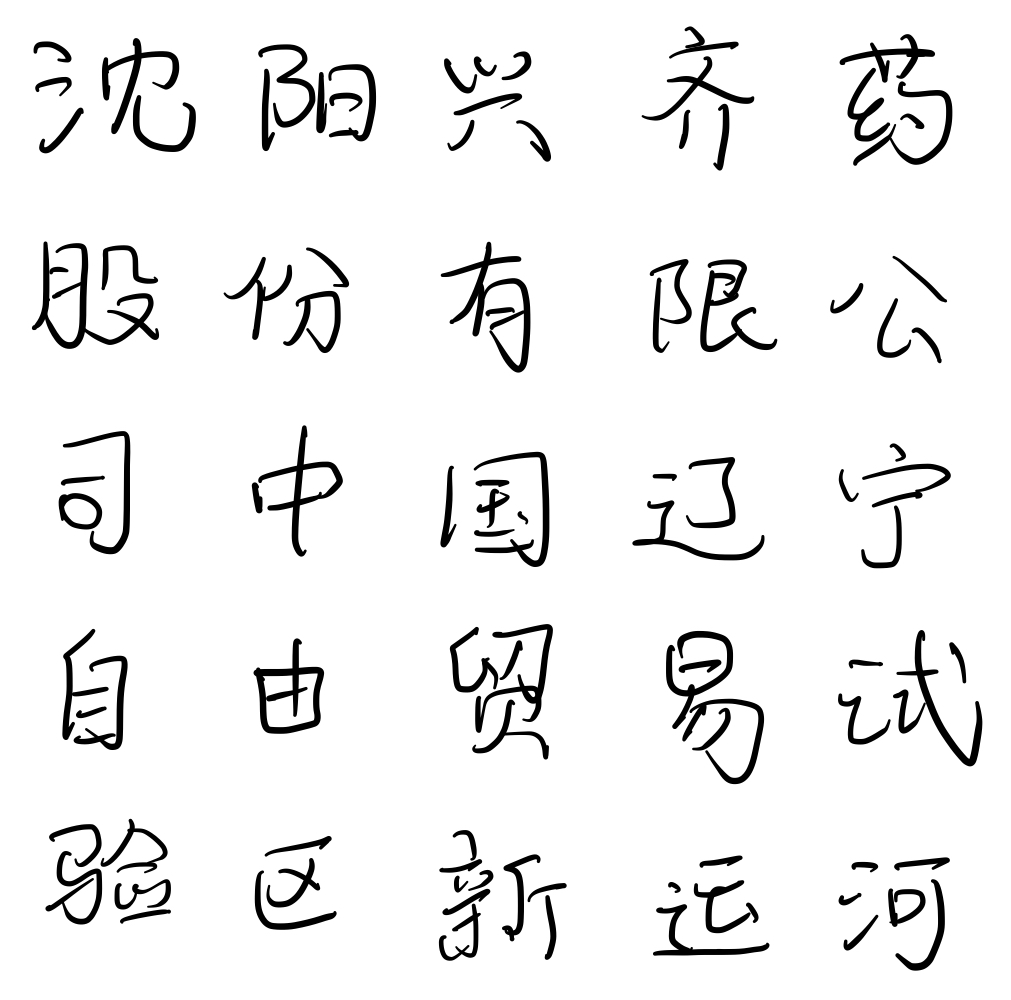 沈阳兴齐药
股份有限公
司中国辽宁
自由贸易试
验区新运河